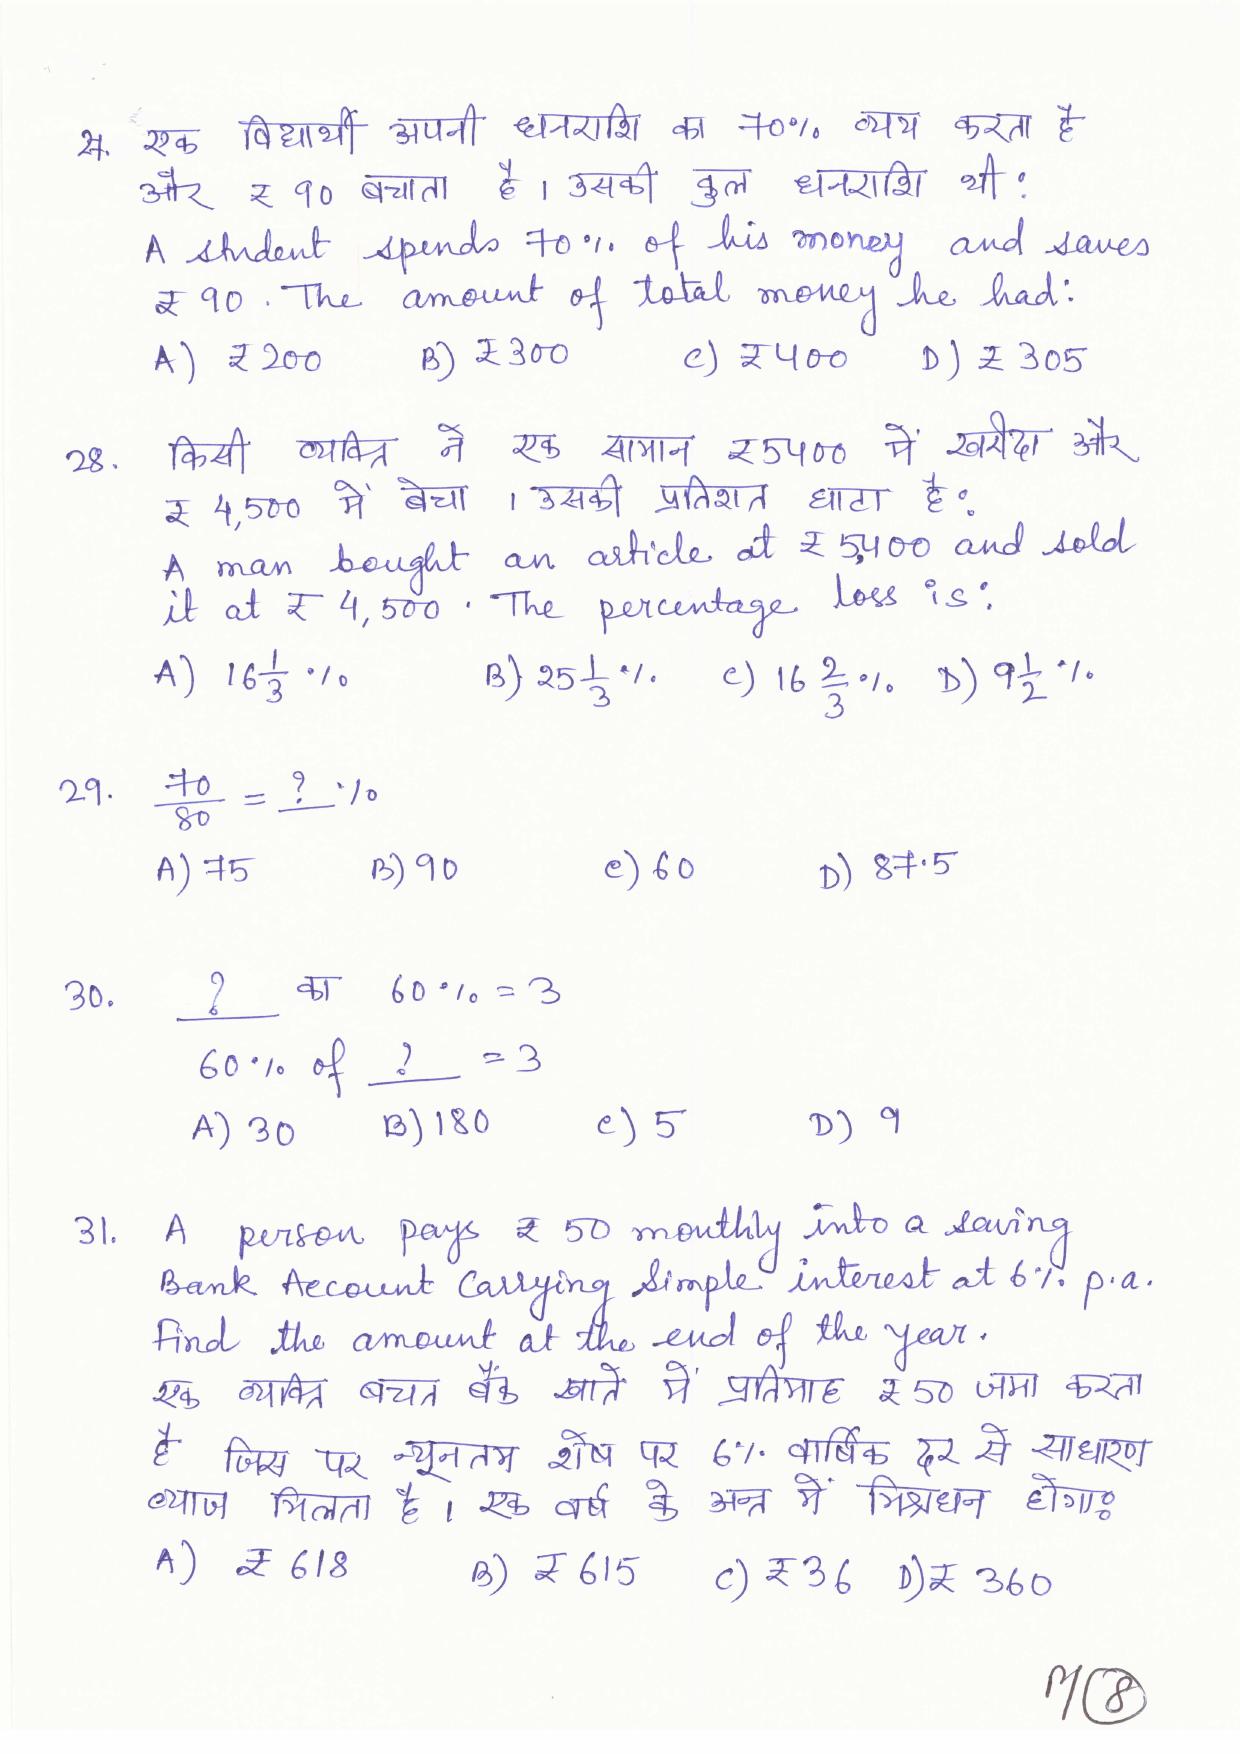 एक विद्यार्थी अपनी धनराशि का 70% व्यय करता है
और ₹ 90 बचाता है। उसकी कुल धनराशि थी:
A student spends 70% of his money and saves
₹ 90. The amount of total money he had:
A) ₹ 200 B) ₹ 300 C) ₹ 400 D) ₹ 305
28. किसी व्यक्ति ने एक सामान ₹ 5400 में खरीदा और
₹ 4,500 में बेचा। उसकी प्रतिशत घाटा है:
A man bought an article at ₹ 5,400 and sold
it at ₹ 4,500. The percentage loss is:
A) 16 1/3 % B) 25 1/3 % C) 16 2/3 % D) 9 1/2 %
29. 70/80 = ? %
A) 75 B) 90 C) 60 D) 87.5
30. ? का 60% = 3
60% of ? = 3
A) 30 B) 180 C) 5 D) 9
31. A person pays ₹ 50 monthly into a saving
Bank Account Carrying Simple interest at 6% p.a.
Find the amount at the end of the year.
एक व्यक्ति बचत बैंक खाते में प्रतिमाह ₹ 50 जमा करता
है जिस पर न्यूनतम शेष पर 6% वार्षिक दर से साधारण
व्याज मिलता है। एक वर्ष के अन्त में मिश्रधन होगा:
A) ₹ 618 B) ₹ 615 C) ₹ 36 D) ₹ 360
M/8